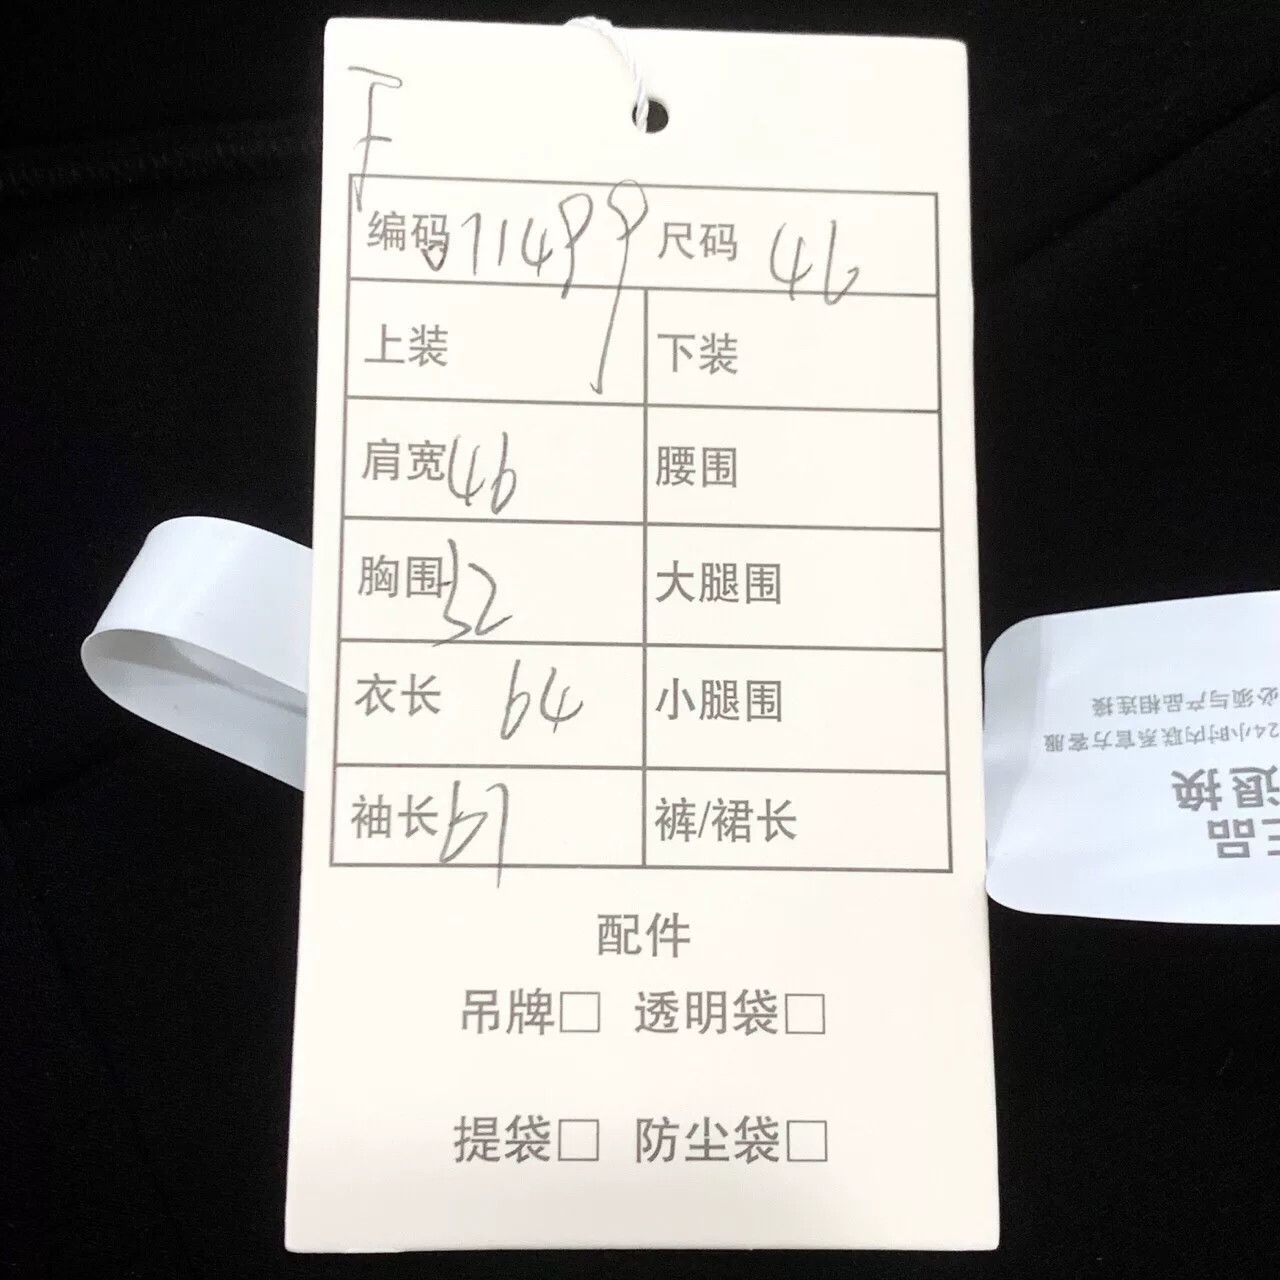 编码 071499 尺码 46
上装 下装
肩宽 46 腰围
胸围 52 大腿围
衣长 64 小腿围
袖长 67 裤/裙长
配件
吊牌□ 透明袋□
提袋□ 防尘袋□
必须与产品相连接
24小时内联系官方客服
退换
正品